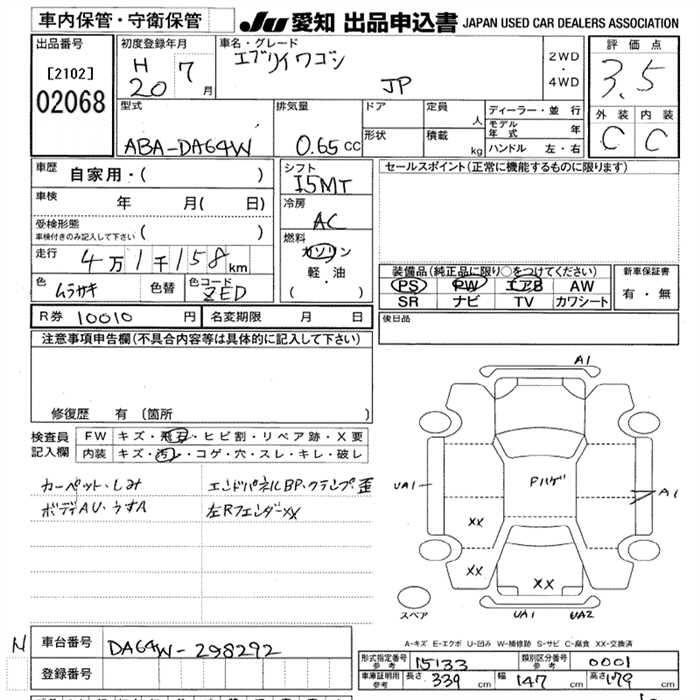 車内保管・守衛保管
JU 愛知 出品申込書 JAPAN USED CAR DEALERS ASSOCIATION
出品番号
[2102]
02068
初度登録年月
H 20 7 月
車名・グレード
エブリイワゴン
JP
2WD
・
4WD
評価点
3.5
外装 内装
C C
型式
ABA-DA64W
排気量
0.65 CC
ドア
形状
定員
人
積載
kg
ディーラー・並行
モデル年式 年
ハンドル 左・右
車歴
自家用・( )
車検
年 月( 日)
受検形態
車検付きのみ記入して下さい ( )
走行
4万1千158km
色
ムラサキ
色替
色コード
ZED
シフト
I5MT
冷房
AC
燃料
ガソリン
軽・油
( )
セールスポイント(正常に機能するものに限ります)
装備品(純正品に限り○をつけてください)
PS PW エアB AW
SR ナビ TV カワシート
新車保証書
有・無
R券 10010 円
名変期限 月 日
後日品
注意事項申告欄(不具合内容等は具体的に記入して下さい)
修復歴 有 〔箇所 〕
検査員
記入欄
FW キズ・飛石・ヒビ割・リペア跡・X要
内装 キズ・汚レ・コゲ・穴・スレ・キレ・破レ
カーペット・しみ
ボディAU・うすA
エンドパネルBP・クランプ歪
左RフェンダーXX
A1
UA1
Fハゲ
A1
XX
XX
XX
スペア
UA1 UA2
A-キズ E-エクボ U-凹み W-補修跡 S-サビ C-腐食 XX-交換済
N
車台番号
DA64W-298292
登録番号
形式指定番号
参考
15133
類別区分番号
参考
0001
車庫証明用
参考
長さ 339 cm
幅 147 cm
高さ 179 cm